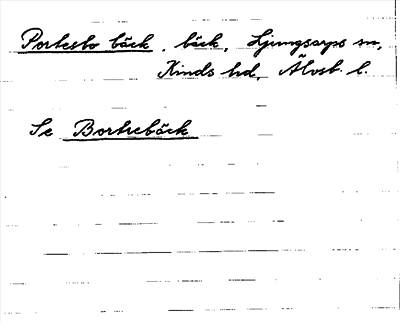 Portesbo bäck, bäck, Ljungsarps sn,
Kinds hd, Älvsb. l.
Se Bortrebäck